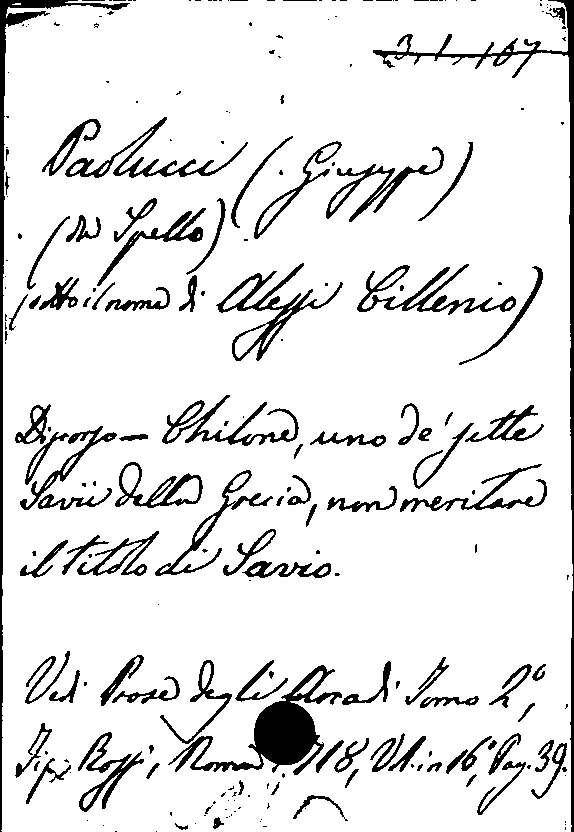 3. 1. 167
Paolucci (Giuseppe)
(da Spello)
(sotto il nome di Alessi Cillenio)
Discorso — Chilone, uno de' sette
Savii della Grecia, non meritare
il titolo di Savio.
Vedi Prose degli Arcadi Tomo 2°,
Tip. Rossi, Roma 1718, Vol. in 16°, Pag. 39.